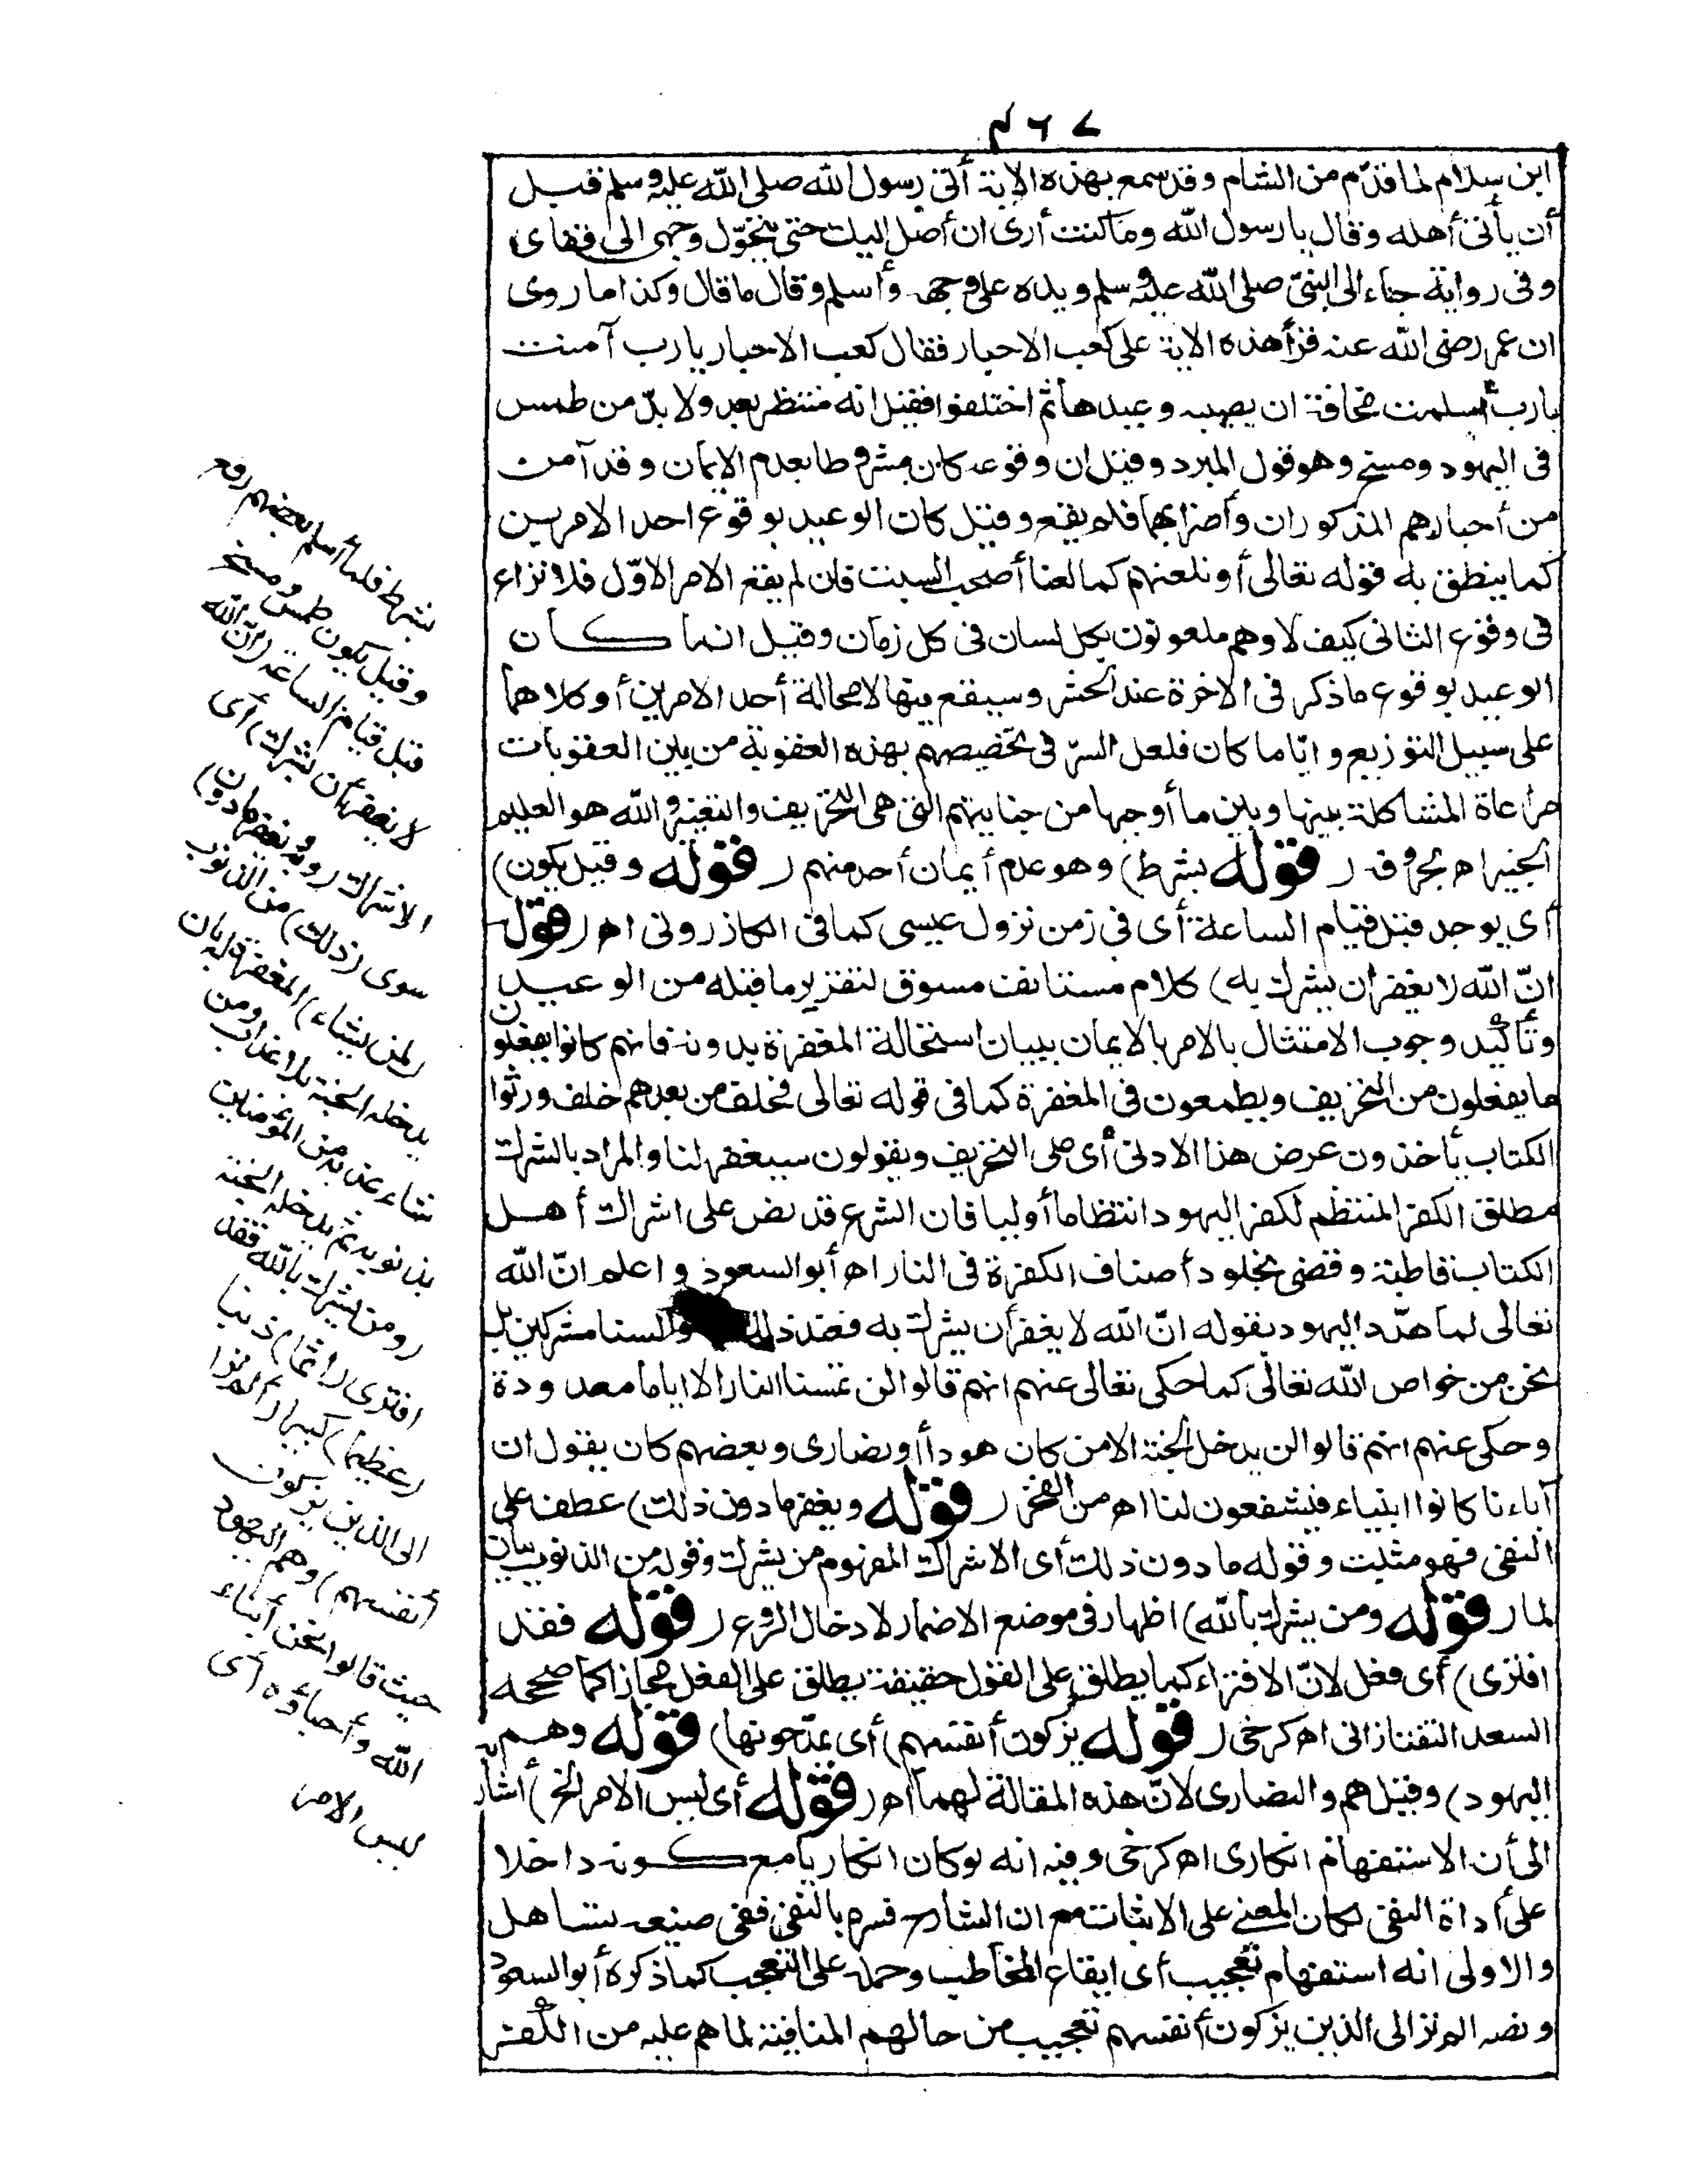 ٤٦٧
ابن سلام لما قدم من الشام وقد سمع بهذه الاية أتى رسول الله صلى الله عليه وسلم قبل
أن يأتى أهله وقال يا رسول الله وما كنت أرى ان أصل اليك حتى يتحوّل وجهى الى قفاى
وفى رواية جاء الى النبىّ صلى الله عليه وسلم ويده على وجهه وأسلم وقال ما قال وكذا ما روى
ان عمر رضى الله عنه قرأ هذه الاية على كعب الاحبار فقال كعب الاحبار يا رب آمنت
يا رب أسلمت مخافة ان يصيبه وعيدها ثم اختلفوا فقيل انه منتظر بعد ولا بدّ من طمس
فى اليهود ومسخ وهو قول المبرد وقيل ان وقوعه كان مشروطا بعدم الايمان وقد آمن
من أحبارهم المذكوران وأضرابهما فلم يقع وقيل كان الوعيد بوقوع احد الامرين
كما ينطق به قوله تعالى أو نلعنهم كما لعنا أصحب السبت فان لم يقع الامر الاوّل فلا نزاع
فى وقوع الثانى كيف لا وهم ملعونون بكل لسان فى كل زمان وقيل انما كان
الوعيد بوقوع ما ذكر فى الاخرة عند الحشر وسيقع فيها لا محالة أحد الامرين أو كلاهما
على سبيل التوزيع وايّا ما كان فلعل السرّ فى تخصيصهم بهذه العقوبة من بين العقوبات
مراعاة المشاكلة بينها وبين ما أوجبها من جنايتهم التى هى التحريف والتغيير والله هو العليم
الخبير اه بحروفه (قوله بشرط) وهو عدم أيمان أحد منهم (قوله وقيل يكون)
أى يوجد قبل قيام الساعة أى فى زمن نزول عيسى كما فى الكازرونى اه (قوله
انّ الله لا يغفر أن يشرك به) كلام مستأنف مسوق لتقرير ما قبله من الوعيد
وتأكيد وجوب الامتثال بالامر بالايمان ببيان استحالة المغفرة بدونه فانهم كانوا يفعلون
ما يفعلون من التحريف ويطمعون فى المغفرة كما فى قوله تعالى فخلف من بعدهم خلف ورثوا
الكتاب يأخذون عرض هذا الادنى أى على التحريف ويقولون سيغفر لنا والمراد بالشرك
مطلق الكفر المنتظم لكفر اليهود انتظاما أوليا فان الشرع قد نص على اشراك أهل
الكتاب قاطبة وقضى بخلود أصناف الكفرة فى النار اه أبو السعود واعلم انّ الله
تعالى لما هدّد اليهود بقوله انّ الله لا يغفر أن يشرك به فعند ذلك لسنا مشركين بل
نحن من خواص الله تعالى كما حكى تعالى عنهم انهم قالوا لن تمسنا النار الا اياما معدودة
وحكى عنهم انهم قالوا لن يدخل الجنة الا من كان هودا أو نصارى وبعضهم كان يقول ان
آباءنا كانوا انبياء فيشفعون لنا اه من الفخر (قوله ويغفر ما دون ذلك) عطف على
النفى فهو مثبت وقوله ما دون ذلك أى الاشراك المفهوم من يشرك وقوله من الذنوب بيان
لما (قوله ومن يشرك بالله) اظهار فى موضع الاضمار لادخال الروع (قوله فقد
افترى) أى فعل لانّ الافتراء كما يطلق على القول حقيقة يطلق على الفعل مجازا كما صححه
السعد التفتازانى اه كرخى (قوله يزكون أنفسهم) أى يمدحونها) قوله وهم
اليهود) وقيل هم والنصارى لانّ هذه المقالة لهما اه (قوله أى ليس الامر الخ) أشار
الى أن الاستفهام انكارى اه كرخى وفيه انه لو كان انكاريا مع كونه داخلا
على أداة النفى لكان المعنى على الاثبات مع ان الشارح فسره بالنفى ففى صنيعه تساهل
والاولى انه استفهام تعجيب أى ايقاع المخاطب وحمله على التعجب كما ذكره أبو السعود
ونصه الم تر الى الذين يزكون أنفسهم تعجيب من حالهم المنافية لما هم عليه من الكفر
بشرط فلما أسلم بعضهم رفع
وقيل يكون طمس ومسخ
قبل قيام الساعة (انّ الله
لا يغفر أن يشرك) أى
الاشراك (به ويغفر ما دون)
سوى (ذلك) من الذنوب
(لمن يشاء) المغفرة له بان
يدخله الجنة بلا عذاب ومن
شاء عذبه من المؤمنين
بذنوبه ثم يدخله الجنة
(ومن يشرك بالله فقد
افترى اثما) ذنبا
(عظيما) كبيرا (ألم تر
الى الذين يزكون
أنفسهم) وهم اليهود
حيث قالوا نحن أبناء
الله وأحباؤه أى
ليس الامر